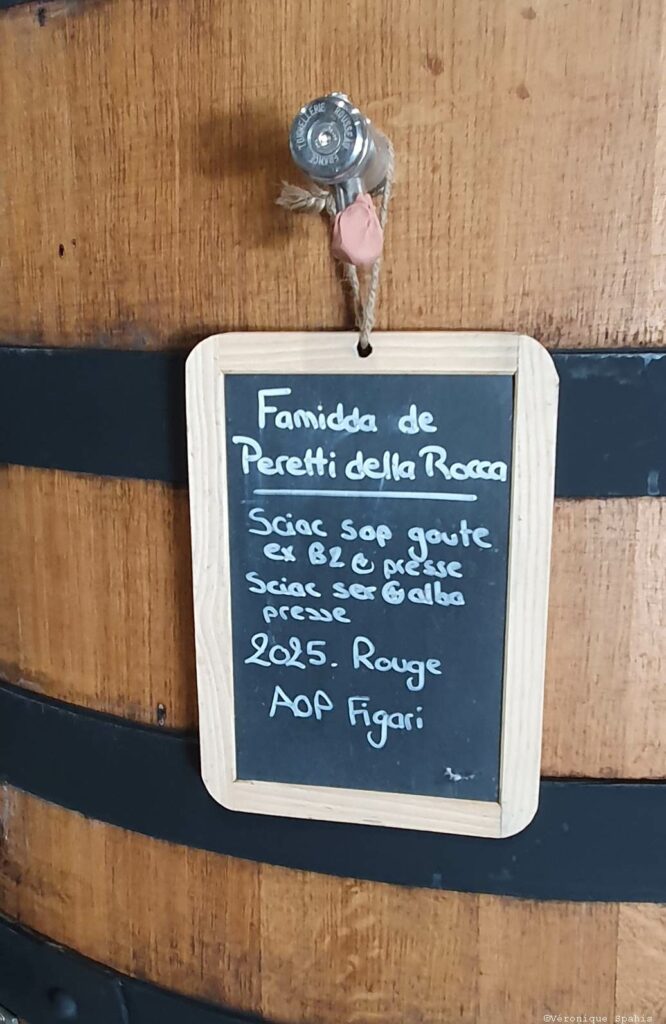 TONNELLERIE ROUSSEAU
FRANCE
Famidda de
Peretti della Rocca
Sciac sop goute
ex B2 @ presse
Sciac ser @ alba
presse
2025. Rouge
AOP Figari
©Véronique Spahis